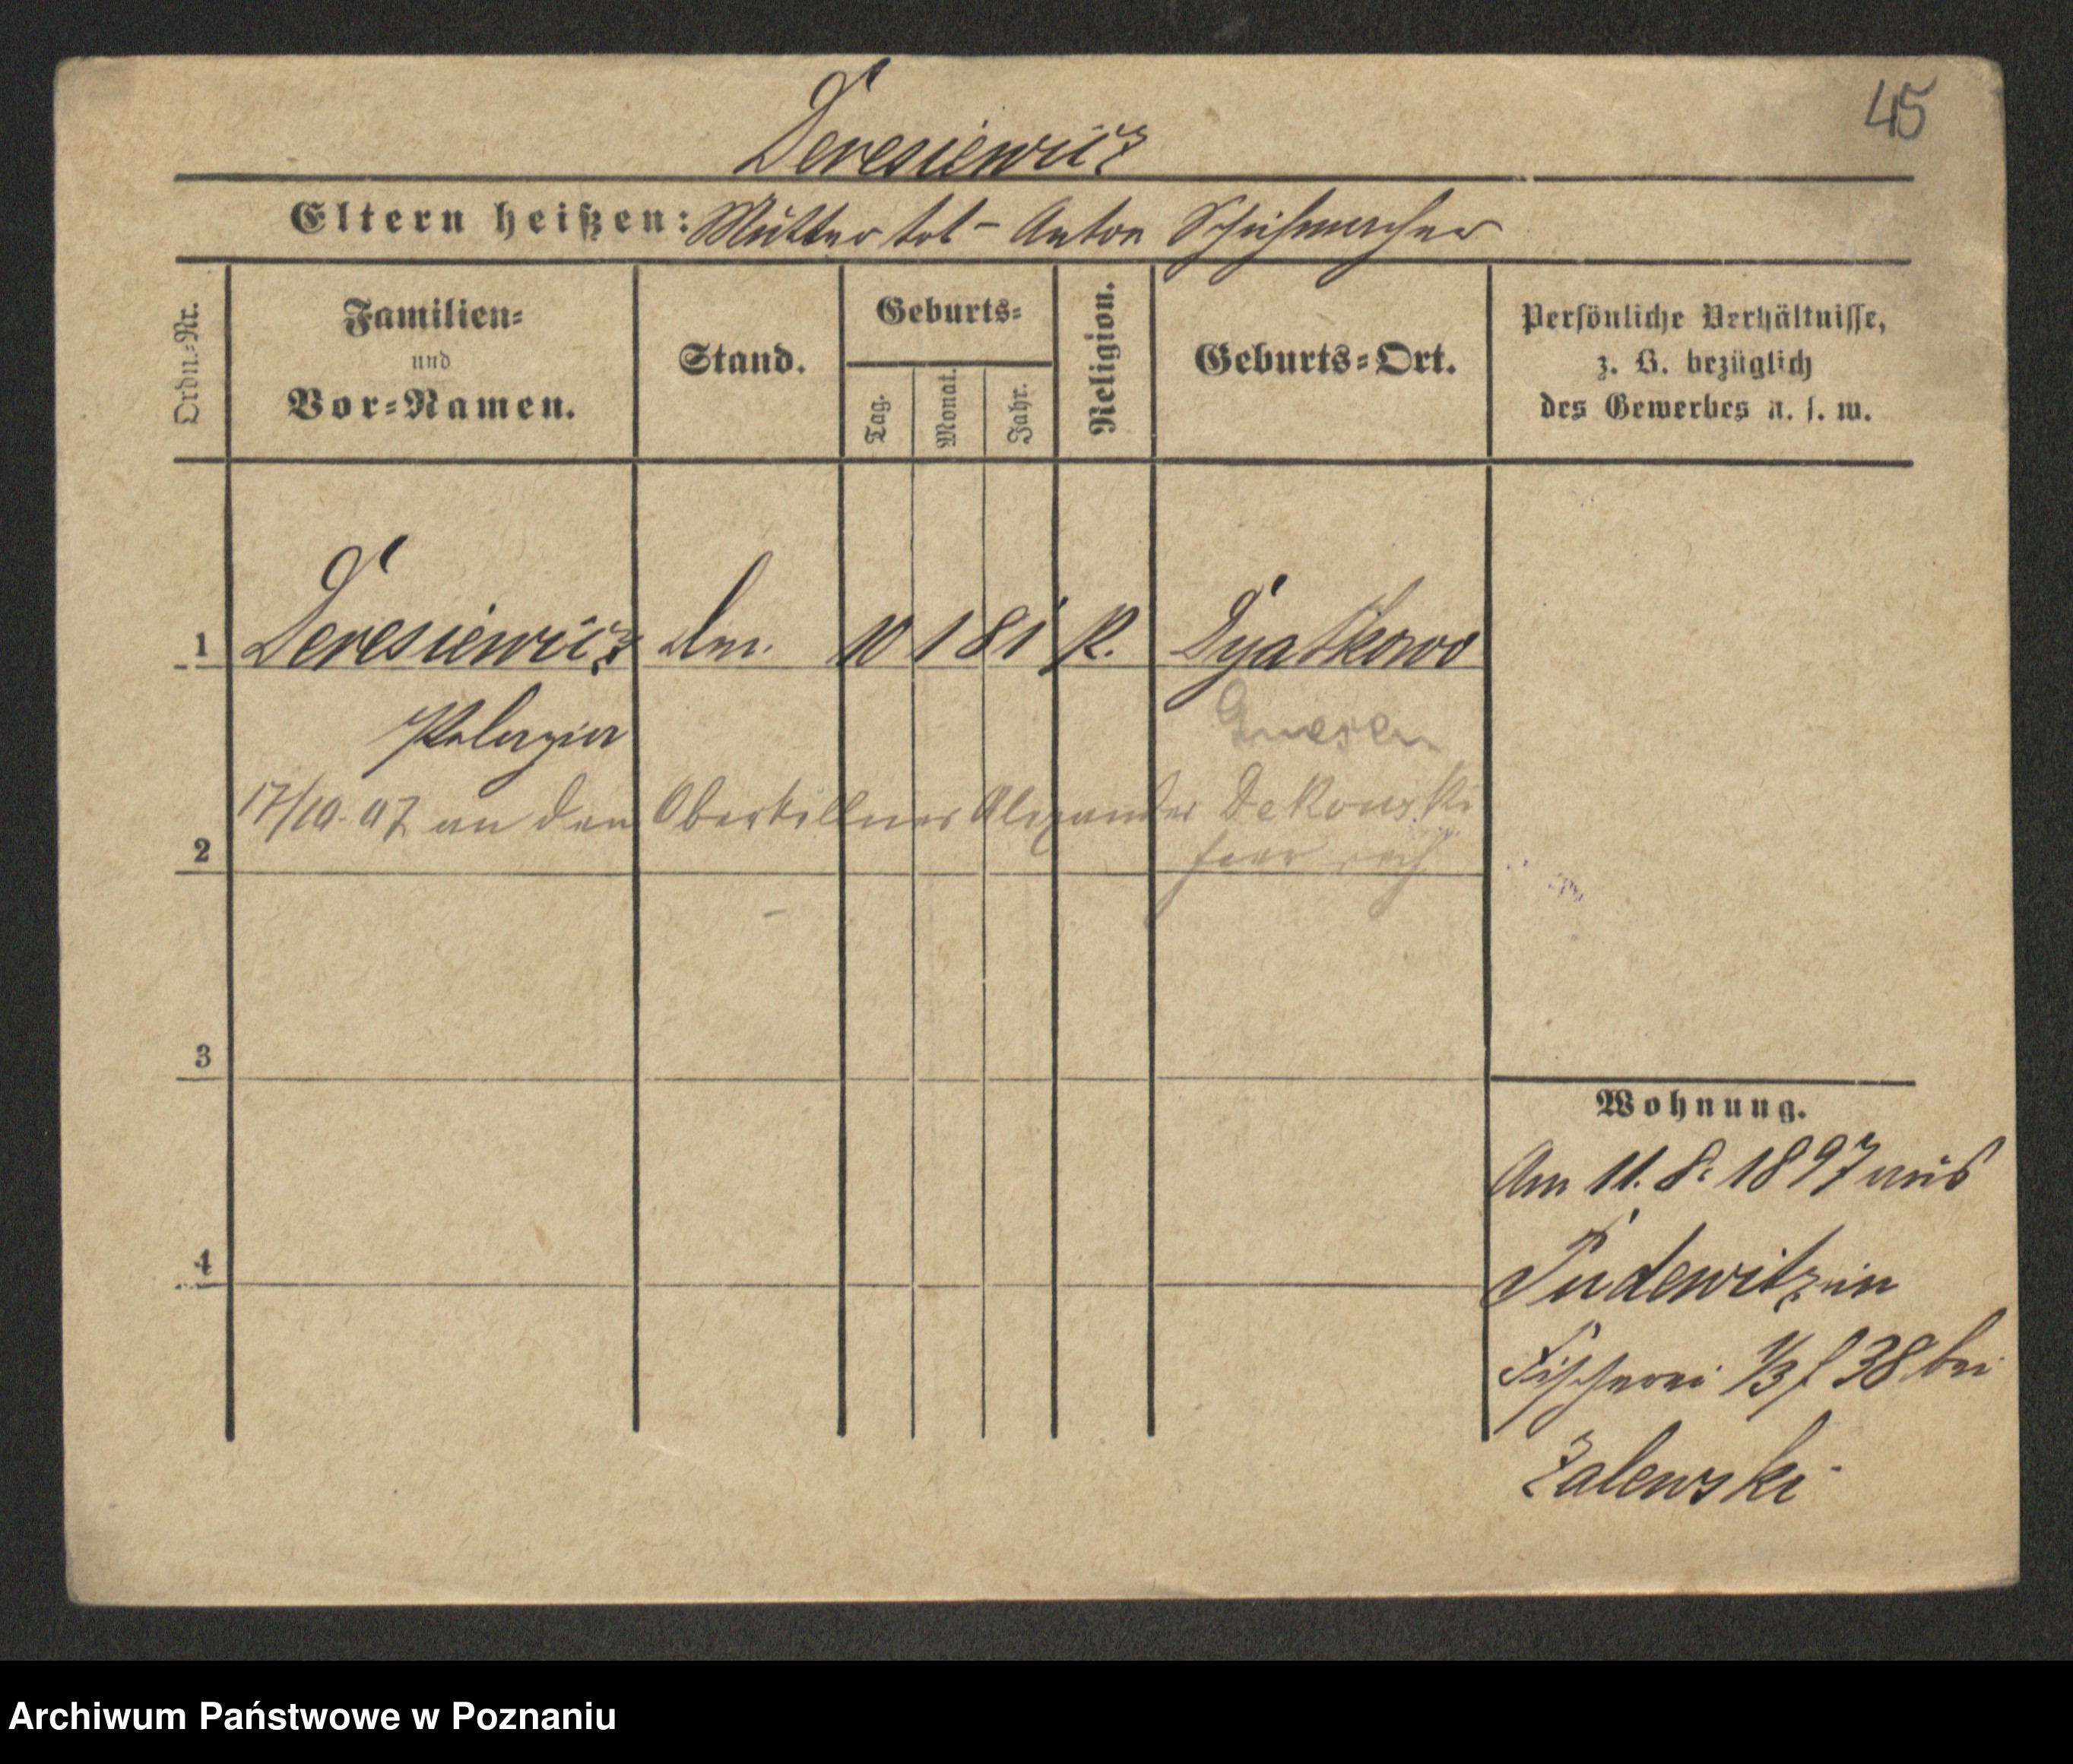 45
Deresiewicz
Eltern heißen: Mutter tot - Anton Schuhmacher
Ordn.=Nr.
Familien=
und
Vor=Namen.
Stand.
Geburts=
Tag.
Monat.
Jahr.
Religion.
Geburts=Ort.
Persönliche Verhältnisse,
z. B. bezüglich
des Gewerbes u. s. w.
1 Deresiewicz 10 1 81 K.
Pelagia Gnesen
17/10. 97 an den Oberkellner Alexander Dekowski
2
3
4
Wohnung.
Am 11. 8. 1897 aus
Pudewitz in
Fischerei 1/3 f 38 bei
Zalewski
Archiwum Państwowe w Poznaniu